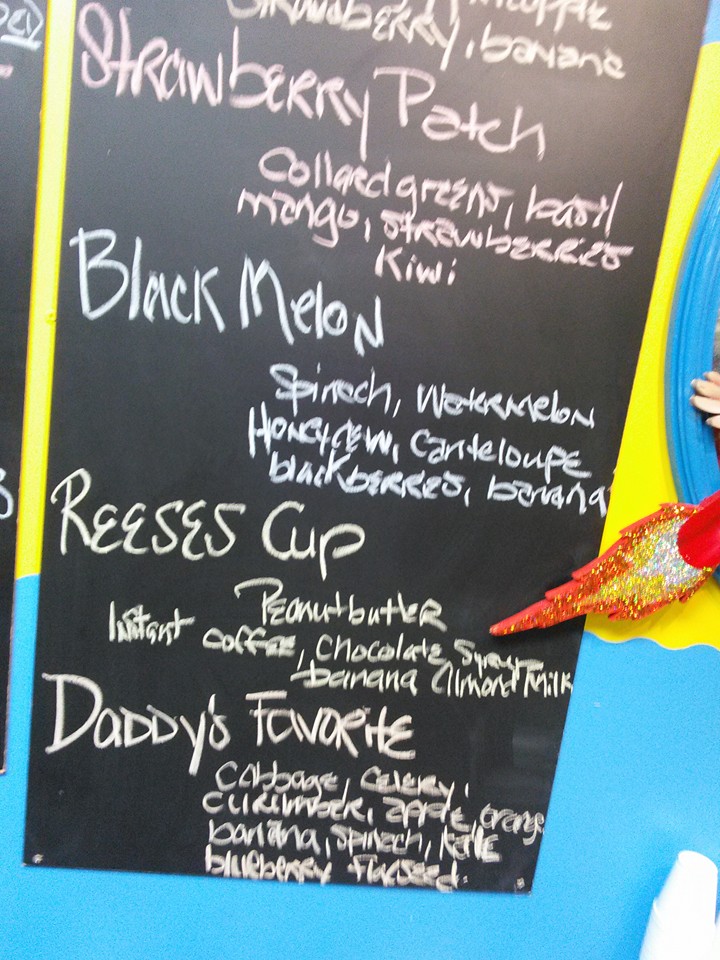 Strawberry, banana
Strawberry Patch
Collard greens, basil
mango, strawberries
Kiwi
Black Melon
Spinach, Watermelon
Honeydew, Canteloupe
blackberries, banana
REESES Cup
Peanutbutter
Instant coffee, Chocolate Syrup
banana Almond Milk
Daddy's Favorite
Cabbage, Celery,
cucumber, apple, orange
banana, spinach, kale
blueberry flaxseed.